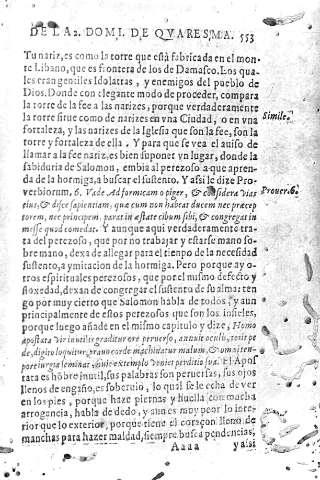 DE LA 2. DOMI. DE QVARESMA. 553
Tu nariz, es como la torre que està fabricada en el mon-
te Libano, que es frontera de los de Damasco. Los qua-
les eran gentiles Idolatras, y enemigos del pueblo de
Dios. Donde con elegante modo de proceder, compara
la torre de la fee a las narizes, porque verdaderamente
la torre sirue como de narizes en vna Ciudad, o en vna
fortaleza, y las narizes de la Iglesia que son la fee, son la
torre y fortaleza de ella. Y para que se vea el auiso de
llamar a la fee nariz, es bien suponer vn lugar, donde la
sabiduria de Salomon, embia al perezoso a que apren-
da de la hormiga, a buscar el sustento. Y assi le dize Pro-
verbiorum. 6. Vade Ad formicam o piger, & considera vias
eius, & disce sapientiam, quæ cum non habeat ducem nec præcep
torem, nec principem. parat in æstate cibum sibi, & congregat in
messe quod comedat. Y aunque aqui verdaderamente tra-
ta del perezoso, que por no trabajar y estarse mano so-
bre mano, dexa de allegar para el tienpo de la necesidad
sustento, a ymitacion de la hormiga. Pero porque ay o-
tros espirituales perezosos, que por el mismo defecto y
floxedad, dexan de congregar el sustento de su alma: ten
go por muy cierto que Salomon habla de todos, y aun
principalmente de estos perezosos que son los infieles,
porque luego añade en el mismo capitulo y dize, Homo
apostata Vir inutilis graditur ore peruerso, annuit oculis, terit pe
de, digito loquitur, prauo corde machinatur malum, & omni tem-
pore iurgia seminat, huic extemplo veniet perditio sua. El Apos
tata es hõbre inutil, sus palabras son peruersas, sus ojos
llenos de engaño, es soberuio, lo qual se le echa de ver
en los pies, porque haze piernas y huella con mucha
arrogancia, habla de dedo, y aun es muy peor lo inte-
rior que lo exterior, porque tiene el coraçon lleno de
manchas para hazer maldad, siempre busca pendencias,
Aaaa y assi
Simile.
Prouer. 6.